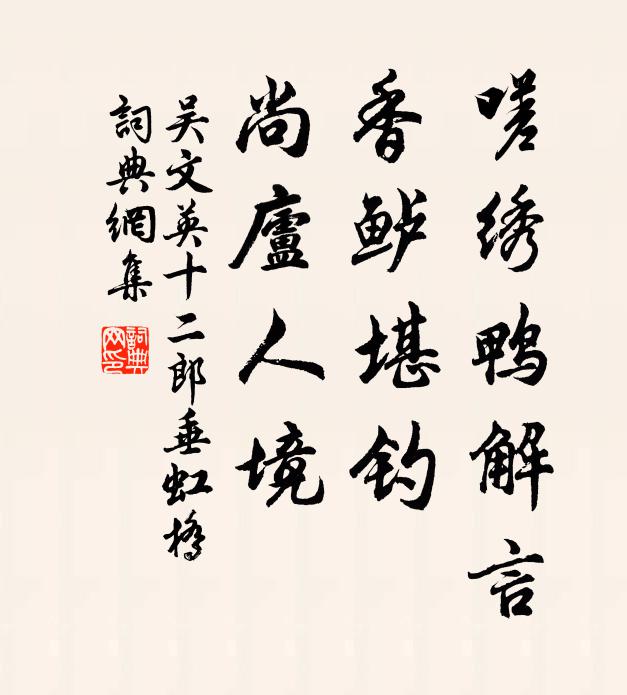 嗟绣鸭解言
香鲈堪钓
尚廬人境
吴文英十二郎垂虹橋
詞典網集
詞典网印